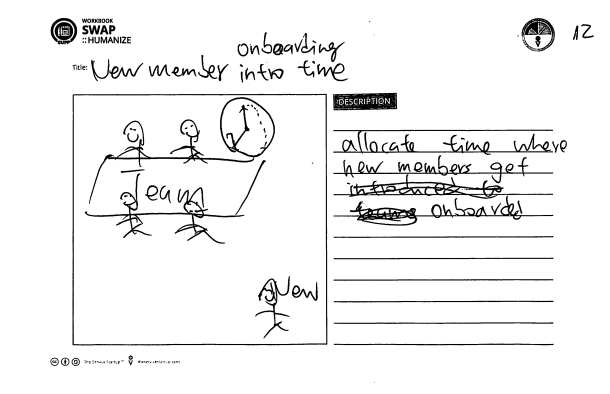 WORKBOOK
SWAP
::HUMANIZE
12
onboarding
Title: New member intro time
DESCRIPTION
allocate time where
new members get
introduced to
teams onboarded
Team
New
The Service Startup™